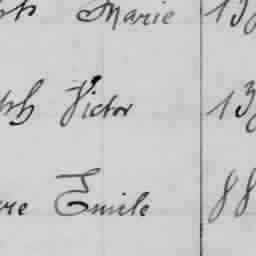 Marie 13
Victor 13
Emile 88